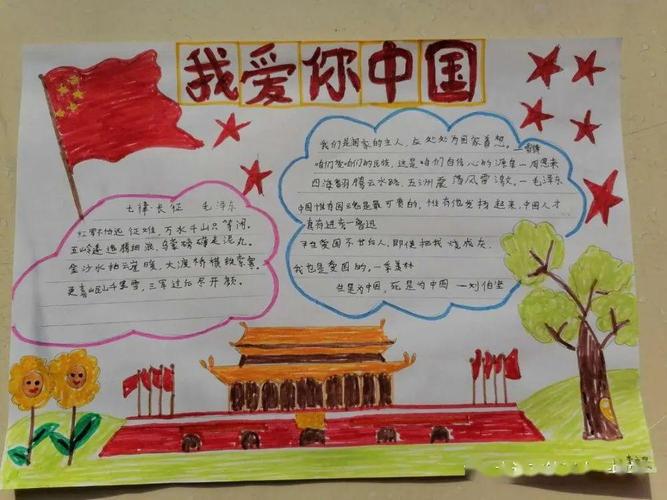 我爱你中国
七律长征 毛泽东
红军不怕远征难,万水千山只等闲。
五岭逶迤腾细浪,乌蒙磅礴走泥丸。
金沙水拍云崖暖,大渡桥横铁索寒。
更喜岷山千里雪,三军过后尽开颜。
我们是国家的主人,应处处为国家着想。—雷锋
咱们爱咱们的民族,这是咱们自信心的源泉—周恩来
四海翻腾云水怒,五洲震荡风雷激。—毛泽东
中国惟有国魂是最可贵的,惟有他发扬起来,中国人才
真有进步—鲁迅
平生爱国不甘后人,即使把我烧成灰,
我也是爱国的。—季羡林
生是为中国,死是为中国—刘伯坚